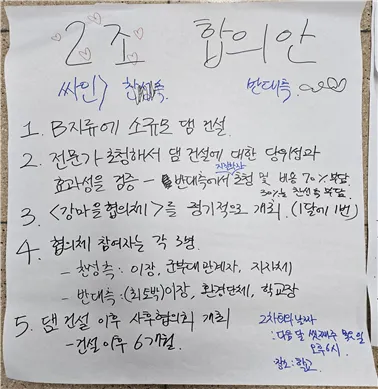 2조 합의안
싸인> 찬성측. 반대측.
1. B지류에 소규모 댐 건설.
2. 전문가 초청해서 댐 건설에 대한 당위성과
효과성을 검증 - 반대측에서 초청 및 비용 70% 부담
30%는 찬성측 부담.
3. <강마을협의체>를 정기적으로 개최. (1달에 1번)
4. 협의체 참여자는 각 3명.
- 찬성측 : 이장, 군부대 관계자, 지자체
- 반대측 : (회도박)이장, 환경단체, 학교장
5. 댐 건설 이후 사후협의회 개최
- 건설 이후 6개월.
2차회의날짜
: 다음달 첫째주 목요일
오후 6시.
장소 : 학교